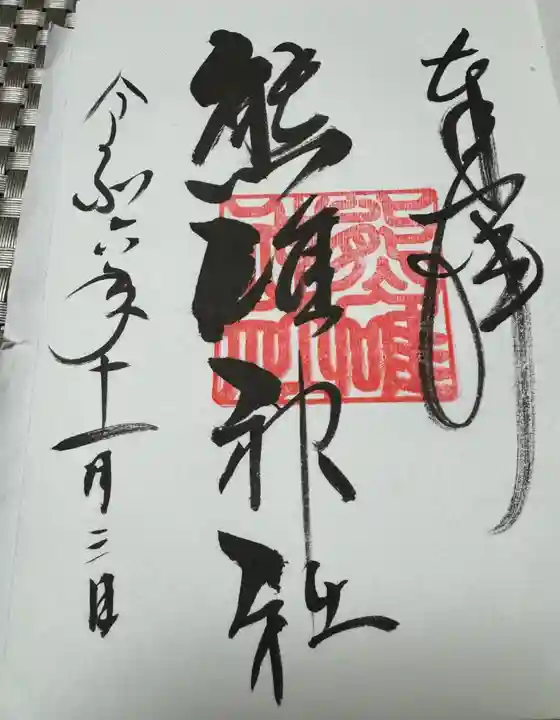 奉拝
熊碓神社
令和六年十一月三日